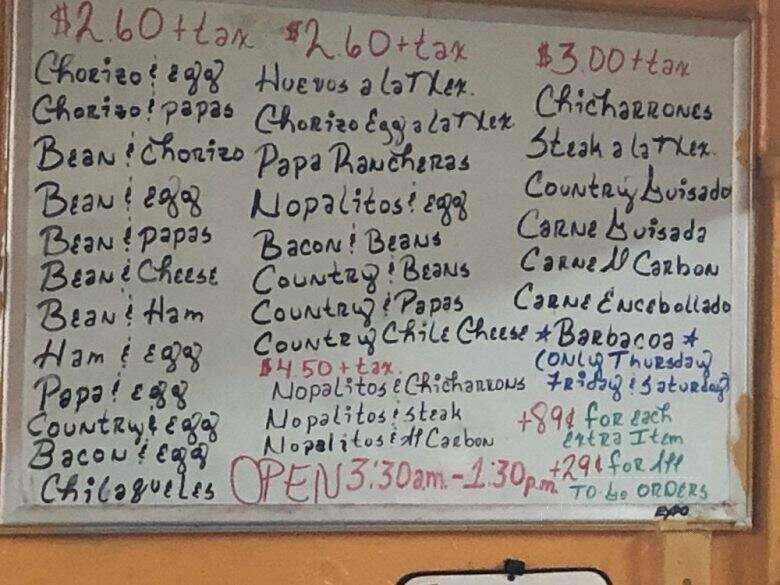 $2.60 + tax
Chorizo & egg
Chorizo & papas
Bean & Chorizo
Bean & egg
Bean & papas
Bean & Cheese
Bean & Ham
Ham & egg
Papa & egg
Country & egg
Bacon & egg
Chilaqueles
$2.60 + tax
Huevos a la Mex.
Chorizo Egg a la Mex
Papa Rancheras
Nopalitos & egg
Bacon & Beans
Country & Beans
Country & Papas
Country Chile Cheese
$4.50 + tax
Nopalitos & Chicharrons
Nopalitos & Steak
Nopalitos & Al Carbon
$3.00 + tax
Chicharrones
Steak a la Mex.
Country Guisado
Carne Guisada
Carne Al Carbon
Carne Encebollado
* Barbacoa *
(Only Thursday
Friday & Saturday)
+89¢ for each
extra Item
+29¢ for All
To-go ORDERS
OPEN 3:30 a.m. - 1:30 p.m.
EXPO